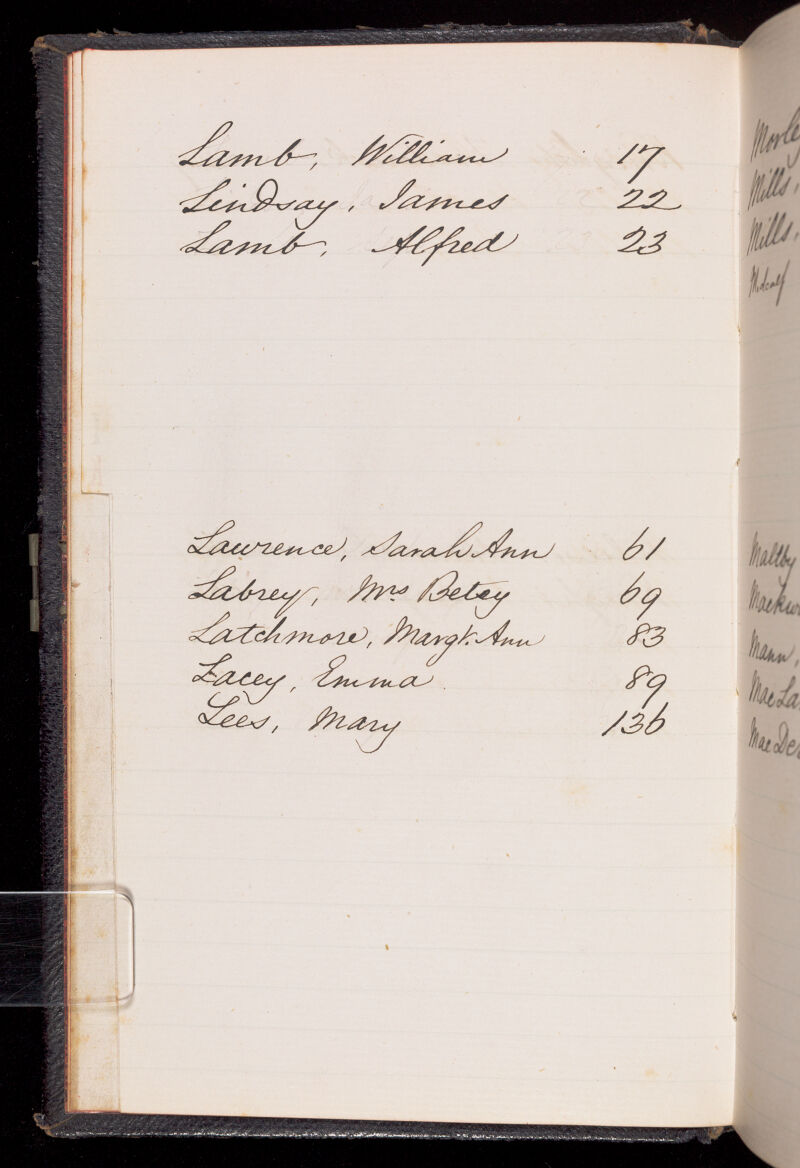 Lamb, William 17
Lindsay, James 22
Lamb, Alfred 23
Lawrence, Sarah Ann 61
Labrey, Mrs Betsy 69
Latchmore, Margt. Ann 83
Lacey, Emma 89
Lees, Mary 136
Mills,
Mills,
Maltby
Mann,